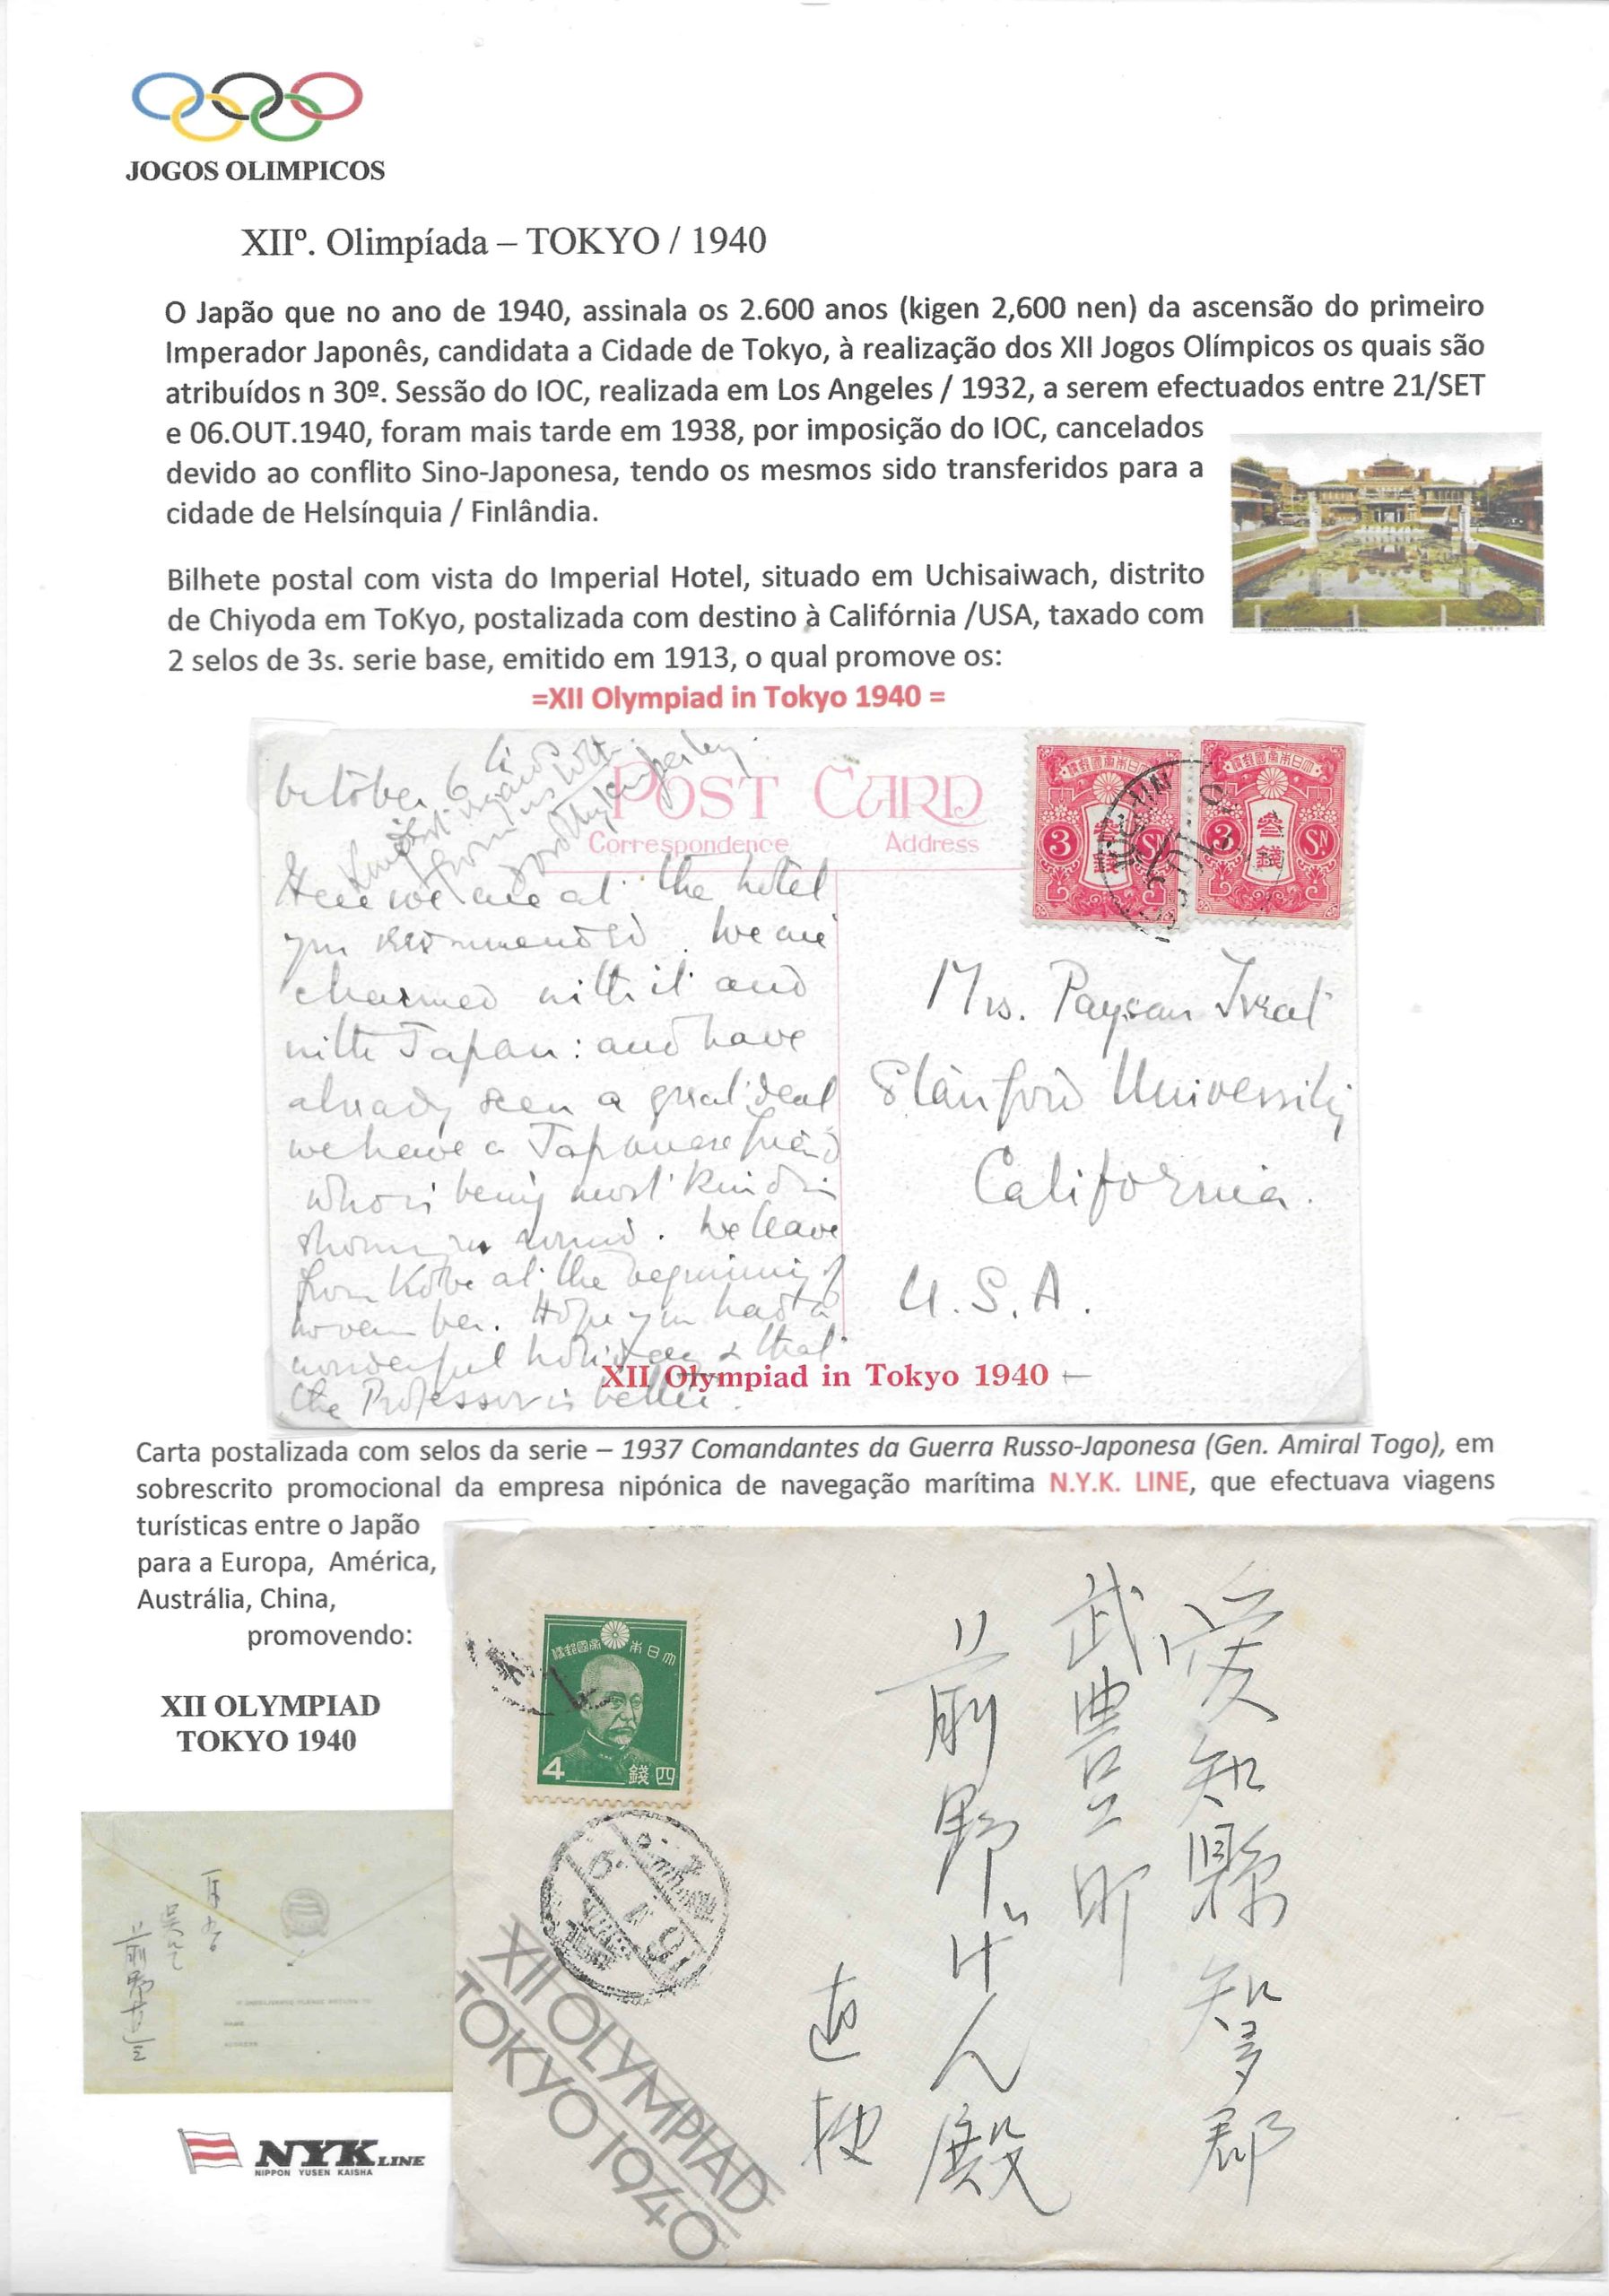 JOGOS OLIMPICOS
XIIº. Olimpíada – TOKYO / 1940
O Japão que no ano de 1940, assinala os 2.600 anos (kigen 2,600 nen) da ascensão do primeiro
Imperador Japonês, candidata a Cidade de Tokyo, à realização dos XII Jogos Olímpicos os quais são
atribuídos n 30º. Sessão do IOC, realizada em Los Angeles / 1932, a serem efectuados entre 21/SET
e 06.OUT.1940, foram mais tarde em 1938, por imposição do IOC, cancelados
devido ao conflito Sino-Japonesa, tendo os mesmos sido transferidos para a
cidade de Helsínquia / Finlândia.
Bilhete postal com vista do Imperial Hotel, situado em Uchisaiwach, distrito
de Chiyoda em ToKyo, postalizada com destino à Califórnia /USA, taxado com
2 selos de 3s. serie base, emitido em 1913, o qual promove os:
=XII Olympiad in Tokyo 1940 =
POST CARD
Correspondence Address
October 6
Here we are at the hotel
you recommended. We are
charmed with it and
with Japan: and have
already seen a great deal
we have a Japanese friend
who is being most kind in
showing us round. We leave
from Kobe at the beginning of
November. Hope you had a
wonderful holiday & that
the Professor is better.
3 SN 3 SN
參錢
Mrs. Payson Treat
Stanford University
California.
U.S.A.
XII Olympiad in Tokyo 1940
Carta postalizada com selos da serie – 1937 Comandantes da Guerra Russo-Japonesa (Gen. Amiral Togo), em
sobrescrito promocional da empresa nipónica de navegação marítima N.Y.K. LINE, que efectuava viagens
turísticas entre o Japão
para a Europa, América,
Austrália, China,
promovendo:
XII OLYMPIAD
TOKYO 1940
NYK LINE
NIPPON YUSEN KAISHA
便郵國帝本日大
4 錢四
愛知縣知多郡
武豊町
前野けん殿
XII OLYMPIAD
TOKYO 1940